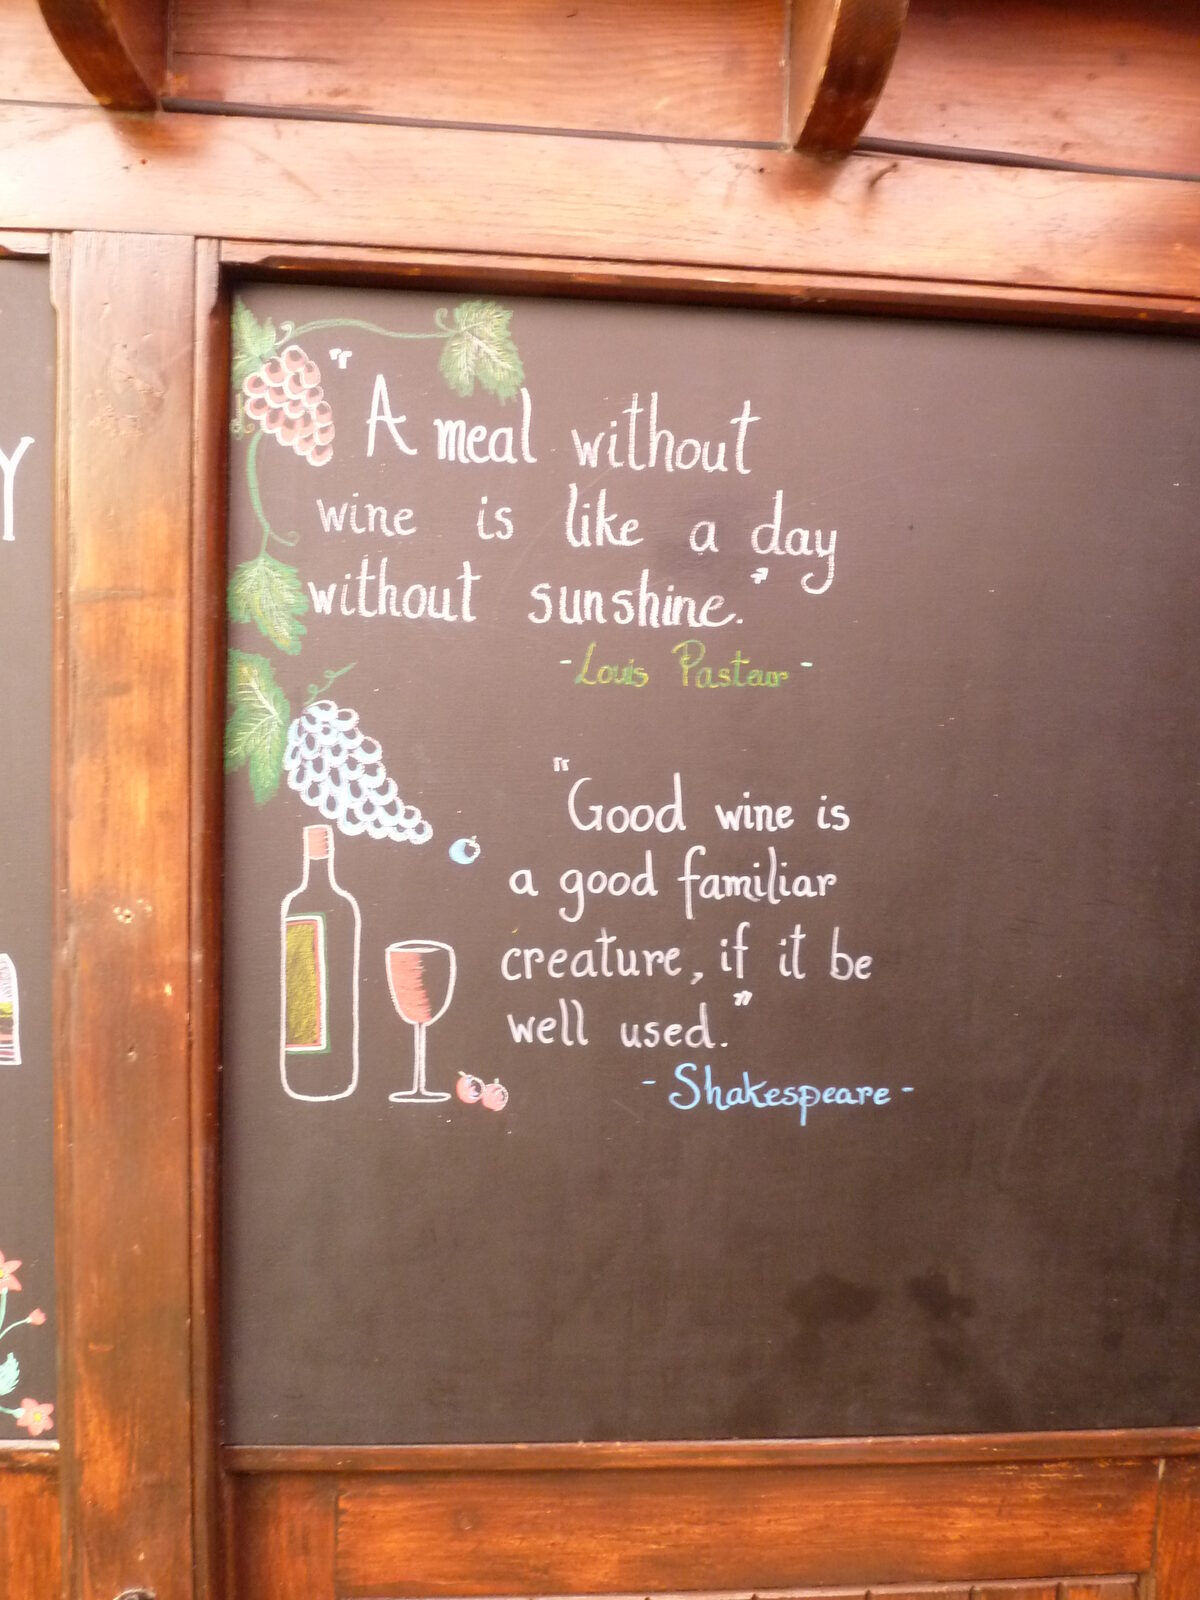 Y
"A meal without
wine is like a day
without sunshine."
-Louis Pasteur-
"Good wine is
a good familiar
creature, if it be
well used."
-Shakespeare-